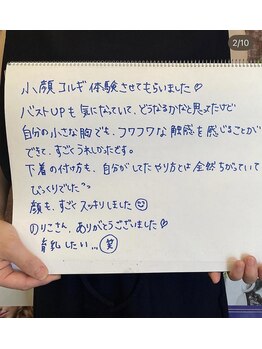 2/10
小顔コルギ体験させてもらいました♡
バストUPも気になっていて、どうなるかなと思ってたけど
自分の小さな胸でも、フワフワな触感を感じることが
できて、すごくうれしかったです。
下着の付け方も、自分がしてたやり方とは全然ちがっていて
びっくりでした^^
顔も、すごくスッキリしました☺
のりこさん、ありがとうございました♡
育乳したい...㊗